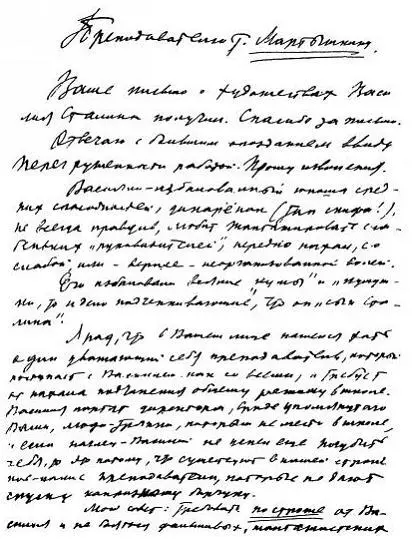 Преподавателю т. Мартышину.
Ваше письмо о художествах Васи-
лия Сталина получил. Спасибо за письмо.
Отвечаю с большим опозданием ввиду
перегруженности работой. Прошу извинения.
Василий – избалованный юноша сред-
них способностей, дикарёнок (тип скифа!),
не всегда правдив, любит шантажировать сла-
беньких "руководителей", нередко нахал, со
слабой или – вернее – неорганизованной волей.
Его избаловали всякие "кумы" и "куму-
шки", то и дело подчеркивающие, что он "сын Ста-
лина".
Я рад, что в Вашем лице нашелся хоть
один уважающий себя преподаватель, который
поступает с Василием, как со всеми, и требует
от нахала подчинения общему режиму в школе.
Василия портят директора, вроде упомянутого
Вами, люди-тряпки, которым не место в школе,
и если нахал-Василий не успел еще погубить
себя, то это потому, что существуют в нашей стране
кое-какие преподаватели, которые не дают
спуску капризному барчуку.
Мой совет: требовать построже от Ва-
силия и не бояться фальшивых, шантажистских